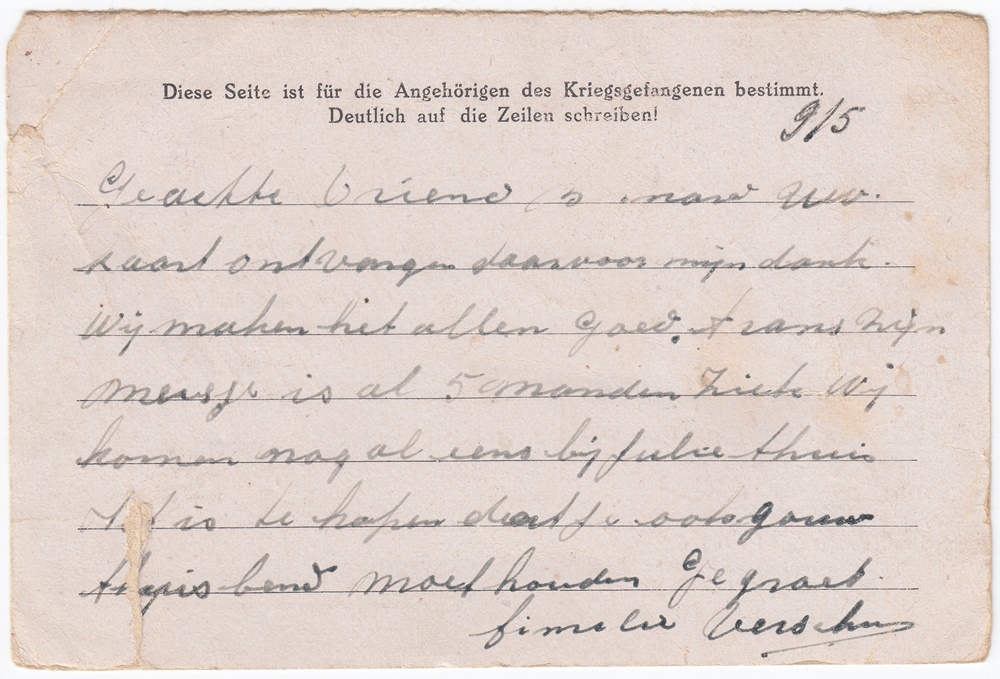 Diese Seite ist für die Angehörigen des Kriegsgefangenen bestimmt.
Deutlich auf die Zeilen schreiben!
9/5
Geachte Vriend s naw uw.
kaart ontvangen daarvoor mijn dank.
Wij maken het allen Goed. Frans zijn
meisje is al 5 manden ziek Wij
komen nog al eens bij Julie thuis
Het is te hopen dat je ook gauw
thuis bend moet houden Gegroet.
fimelie